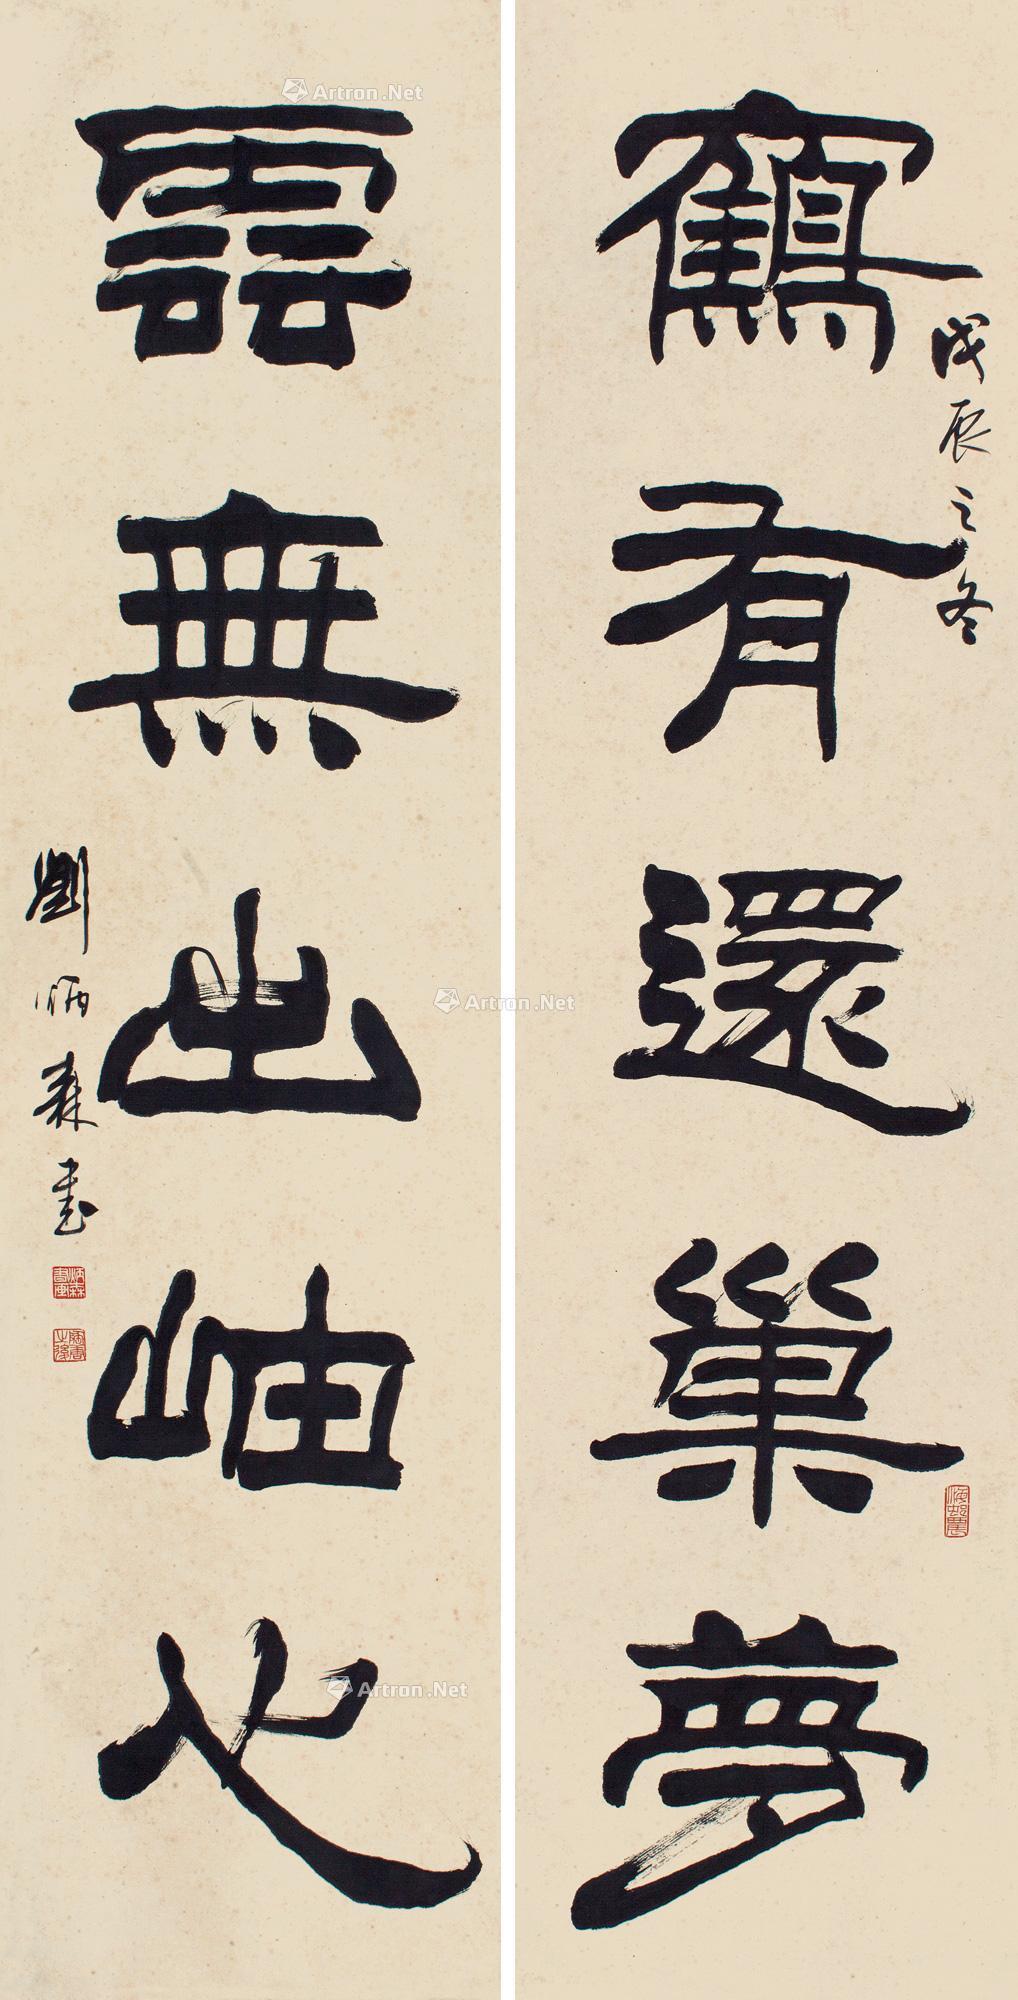 鶴有還巢夢
戊辰之冬
雲無出岫心
劉炳森書
Artron.Net
Artron.Net
Artron.Net